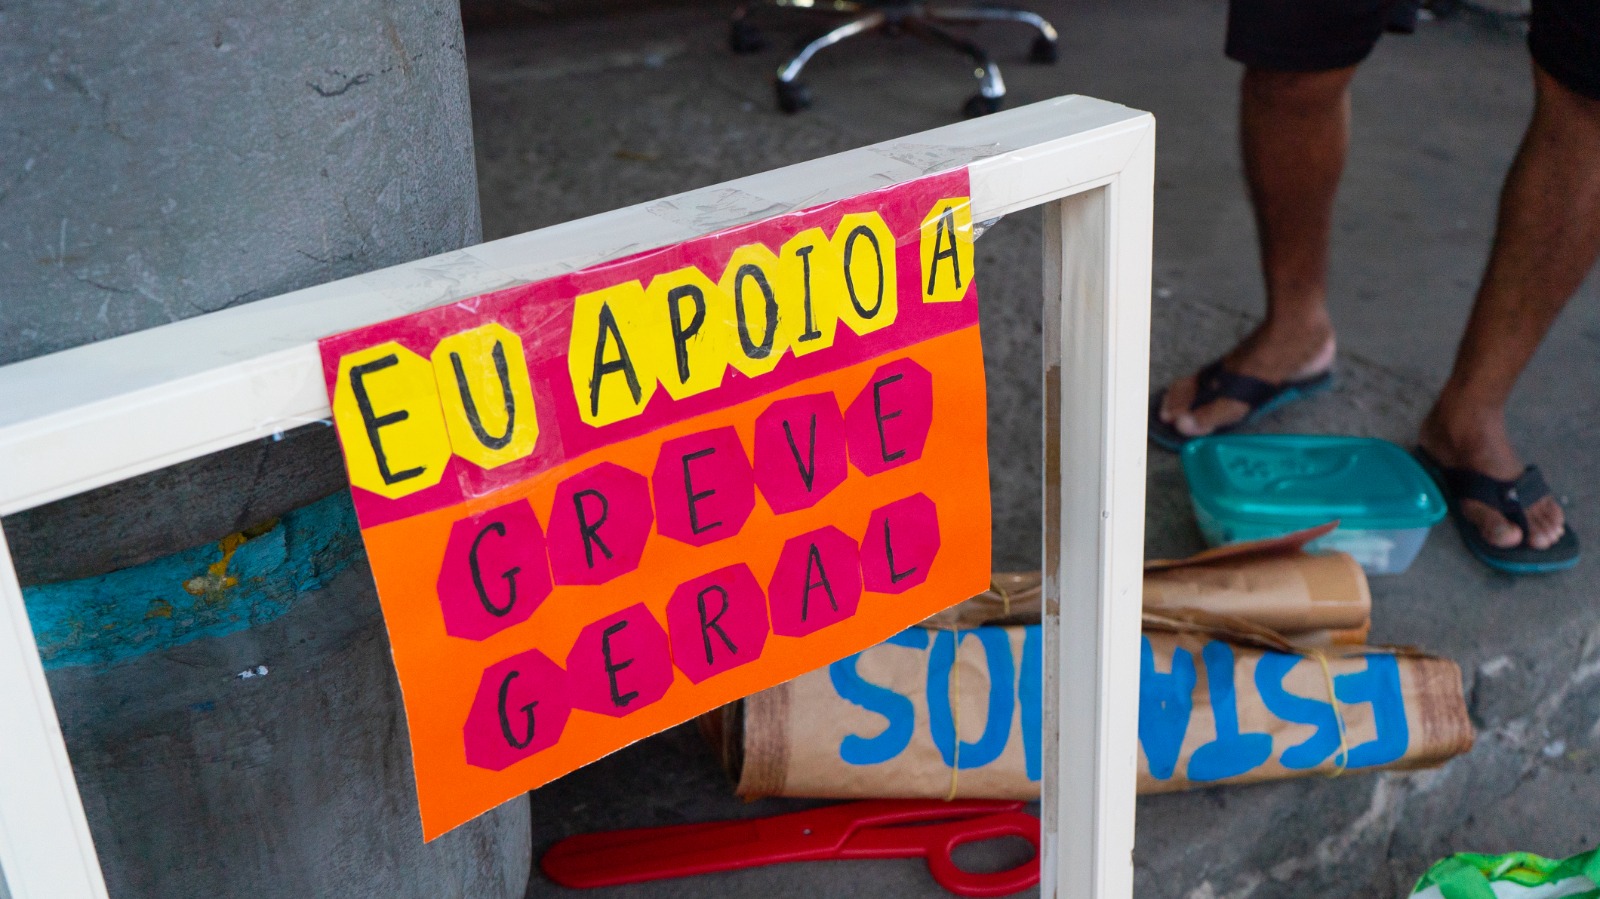 EU APOIO A
GREVE
GERAL
ESTA
IOS